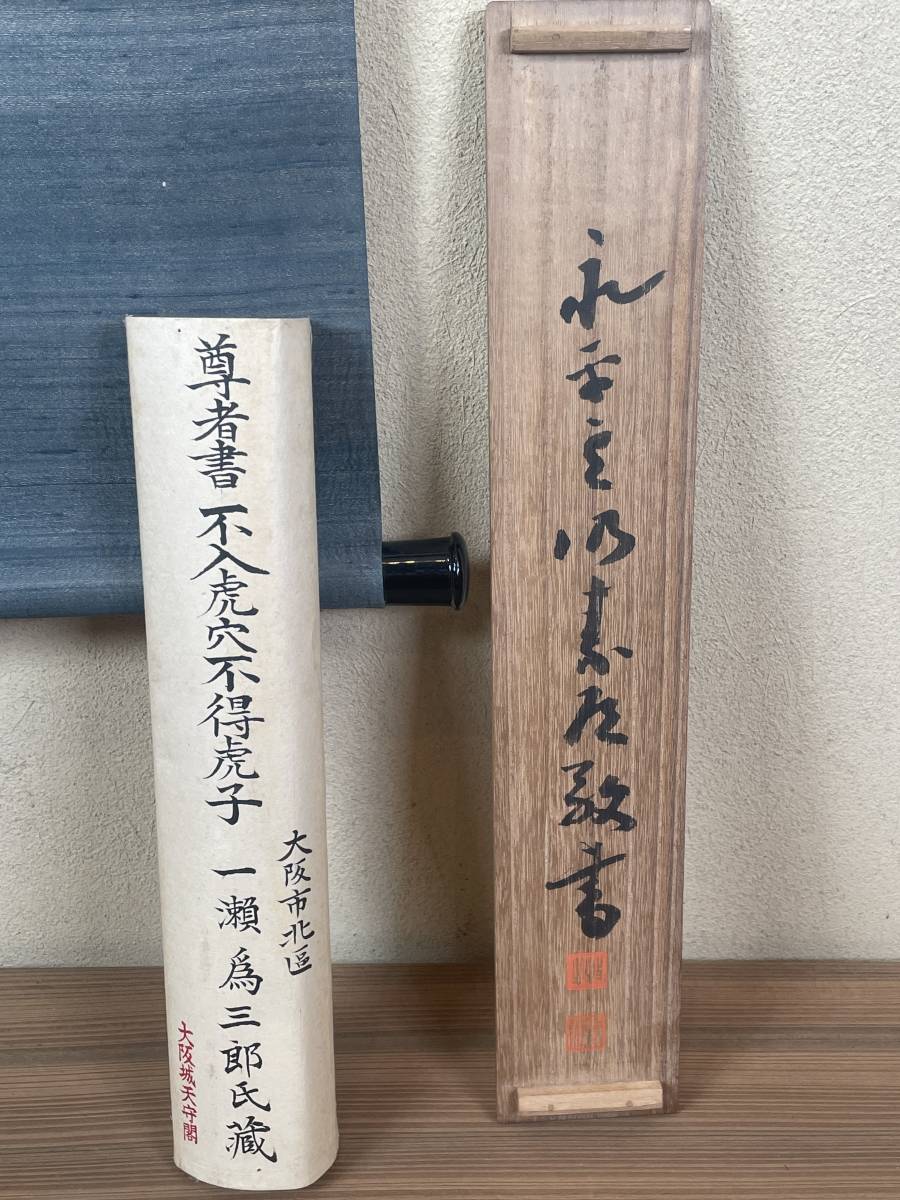 永平敬書
大阪市北區
尊者書 不入虎穴不得虎子 一瀬爲三郎氏藏
大阪城天守閣